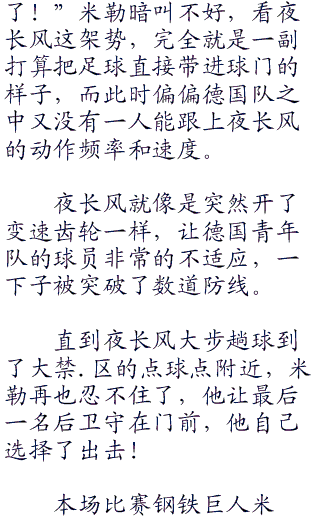 了！”米勒暗叫不好，看夜
长风这架势，完全就是一副
打算把足球直接带进球门的
样子，而此时偏偏德国队之
中又没有一人能跟上夜长风
的动作频率和速度。
夜长风就像是突然开了
变速齿轮一样，让德国青年
队的球员非常的不适应，一
下子被突破了数道防线。
直到夜长风大步趟球到
了大禁.区的点球点附近，米
勒再也忍不住了，他让最后
一名后卫守在门前，他自己
选择了出击！
本场比赛钢铁巨人米